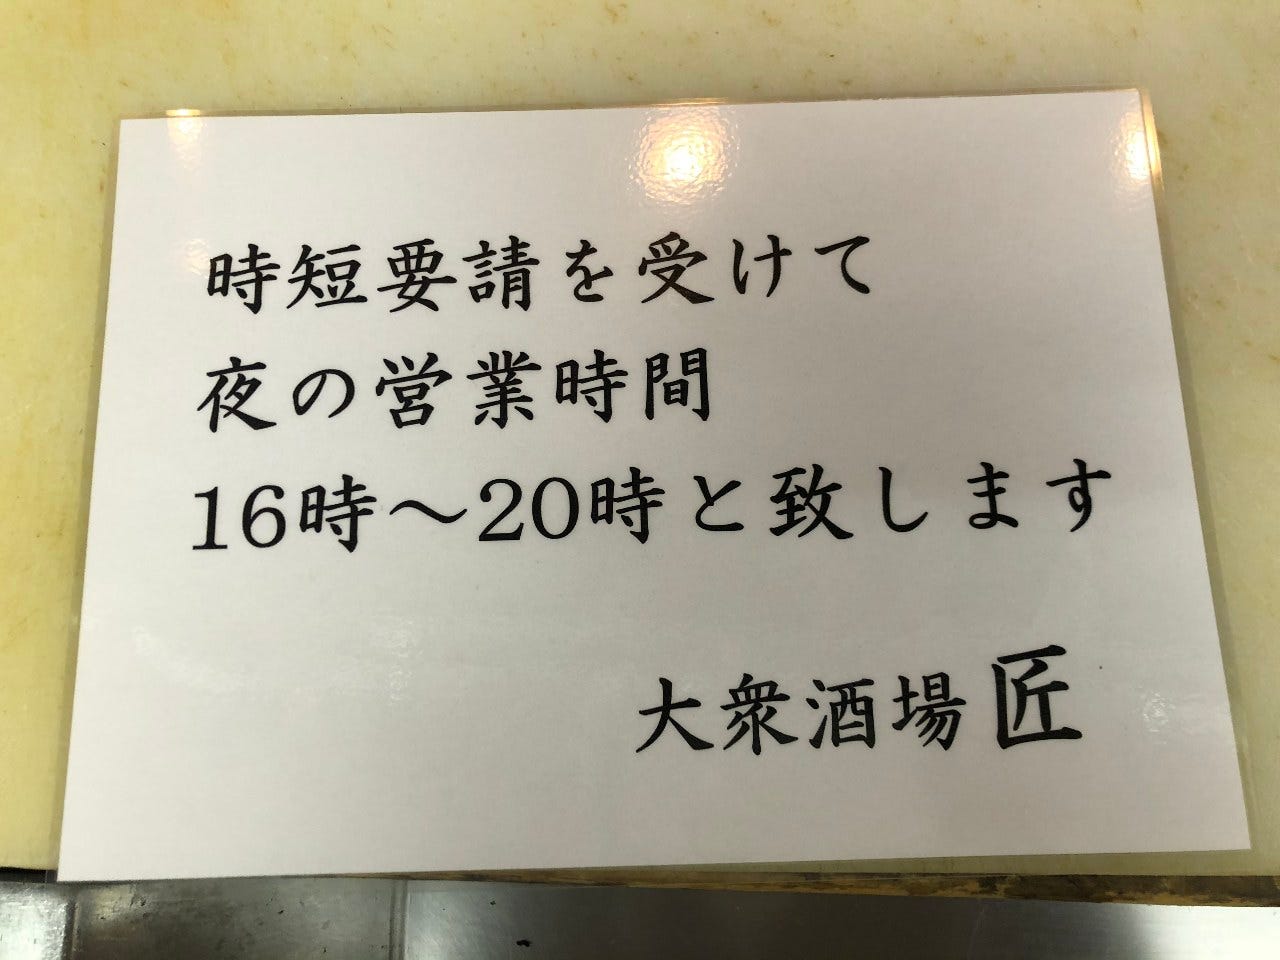 時短要請を受けて
夜の営業時間
16時～20時と致します
大衆酒場 匠